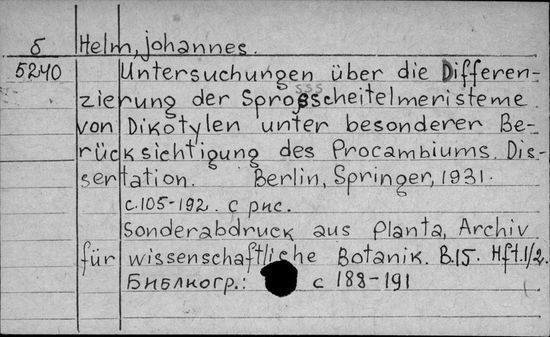 б Helm, Johannes.
5240 Untersuchungen über die Differen-
zierung der Sproßscheitelmeristeme
von Dikotylen unter besonderer Be-
rücksichtigung des Procambiums. Dis-
sertation. Berlin, Springer, 1931.
с. 105-192. с рис.
Sonderabdruck aus Planta, Archiv
für wissenschaftliche Botanik. B.15. Hft.1/2.
Библиогр.: с 188-191